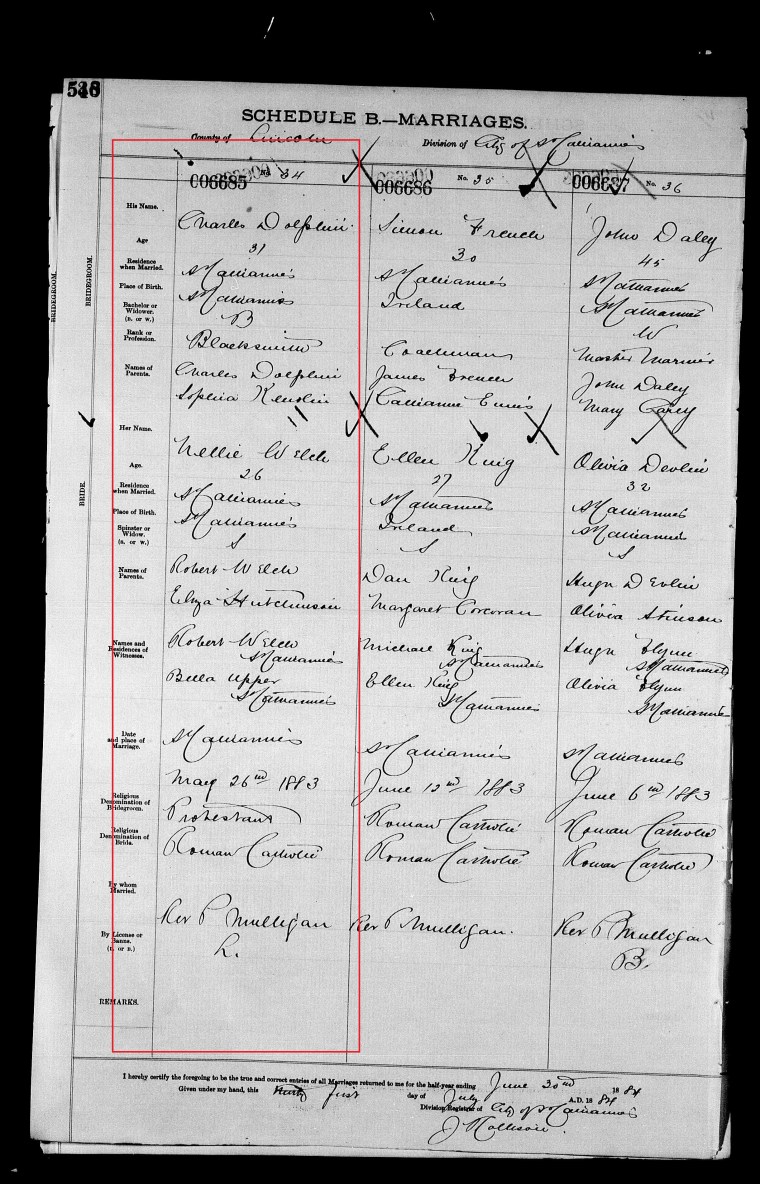 SCHEDULE B.—MARRIAGES.
County of Lincoln Division of City of St Catharines
006685 No. 34
006686 No. 35
006687 No. 36
BRIDEGROOM.
BRIDEGROOM.
His Name. Charles Dolphin Simon French John Daley
Age 31 30 45
Residence when Married. St Catharines St Catharines St Catharines
Place of Birth. St Catharines Ireland St Catharines
Bachelor or Widower. (B. or W.) B W
Rank or Profession. Blacksmith Coachman Master Mariner
Names of Parents. Charles Dolphin James French John Daley
Sophia Catharine Mary Carey
BRIDE.
Her Name. Nellie Welch Ellen King Olivia Devlin
Age. 26 27 32
Residence when Married. St Catharines St Catharines St Catharines
Place of Birth. St Catharines Ireland St Catharines
Spinster or Widow. (S. or W.) S S S
Names of Parents. Robert Welch Dan King Hugh Devlin
Eliza Hutchinson Margaret Corcoran Olivia Atkinson
Names and Residences of Witnesses. Robert Welch Michael King Hugh Flynn
St Catharines St Catharines St Catharines
Bella Upper Ellen King Olivia Flynn
St Catharines St Catharines St Catharines
Date and place of Marriage. St Catharines St Catharines St Catharines
May 26th 1883 June 12th 1883 June 6th 1883
Religious Denomination of Bridegroom. Protestant Roman Catholic Roman Catholic
Religious Denomination of Bride. Roman Catholic Roman Catholic Roman Catholic
By whom Married. Rev P Mulligan Rev P Mulligan. Rev P Mulligan
By License or Banns. (L. or B.) L. B.
REMARKS.
I hereby certify the foregoing to be the true and correct entries of all Marriages returned to me for the half-year ending June 30th 1884
Given under my hand, this first day of July A.D. 1884
Division Registrar of City of St Catharines